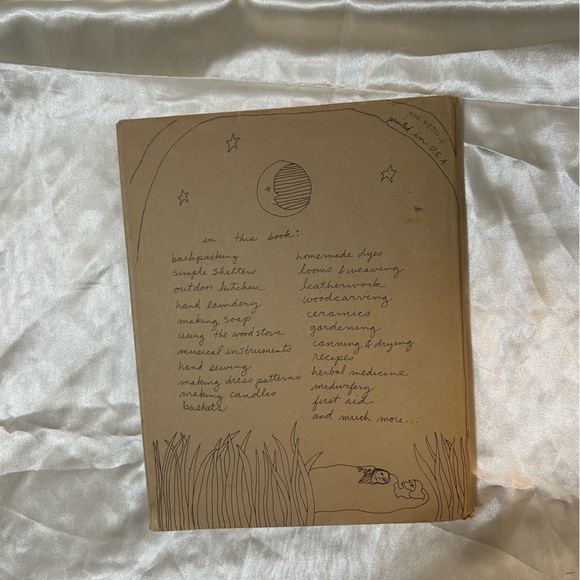 printed in U.S.A.
in this book:
backpacking
simple shelters
outdoor kitchen
hand laundery
making soap
using the wood stove
musical instruments
hand sewing
making dress patterns
making candles
baskets
homemade dyes
looms & weaving
leatherwork
woodcarving
ceramics
gardening
canning & drying
recipes
herbal medicine
midwifery
first aid
and much more...